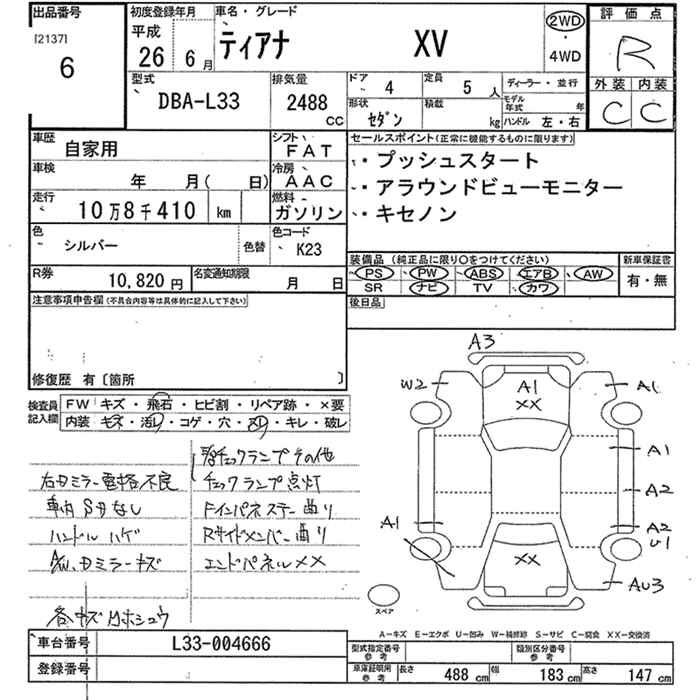 出品番号
[2137]
6
初度登録年月
平成
26 6月
車名・グレード
ティアナ XV
2WD
・
4WD
評価点
R
外装 内装
C C
型式
DBA-L33
排気量
2488 CC
ドア 4
定員 5 人
形状 セダン
積載 kg
ディーラー・並行
モデル年式 年
ハンドル 左・右
車歴
自家用
シフト
FAT
車検
年 月( 日)
冷房
AAC
走行
10万8千410 km
燃料
ガソリン
色
シルバー
色替
色コード
K23
R券
10,820 円
名変通知期限
月 日
セールスポイント(正常に機能するものに限ります)
・プッシュスタート
・アラウンドビューモニター
・キセノン
装備品 (純正品に限り○をつけてください)
PS PW ABS エアB AW
SR ナビ TV カワ
新車保証書
有・無
後日品
注意事項申告欄(不具合内容等は具体的に記入して下さい)
修復歴 有〔箇所 〕
検査員記入欄
FW キズ・飛石・ヒビ割・リペア跡・×要
内装 キズ・汚レ・コゲ・穴・スレ・キレ・破レ
右Dミラー電格不良
車内SDなし
ハンドルハゲ
AW、Dミラーキズ
各キズ、H、ホシュウ
チェックランプその他
チェックランプ点灯
Fインパネステー曲り
Rサイドメンバー曲り
エンドパネルXX
A3
W2
A1
XX
A1
A1
A2
A1
A2
U1
XX
AU3
スペア
A−キズ E−エクボ U−凹み W−補修跡 S−サビ C−腐食 XX−交換済
車台番号
L33-004666
登録番号
型式指定番号 参考
類別区分番号 参考
車庫証明用 参考
長さ 488 cm
幅 183 cm
高さ 147 cm